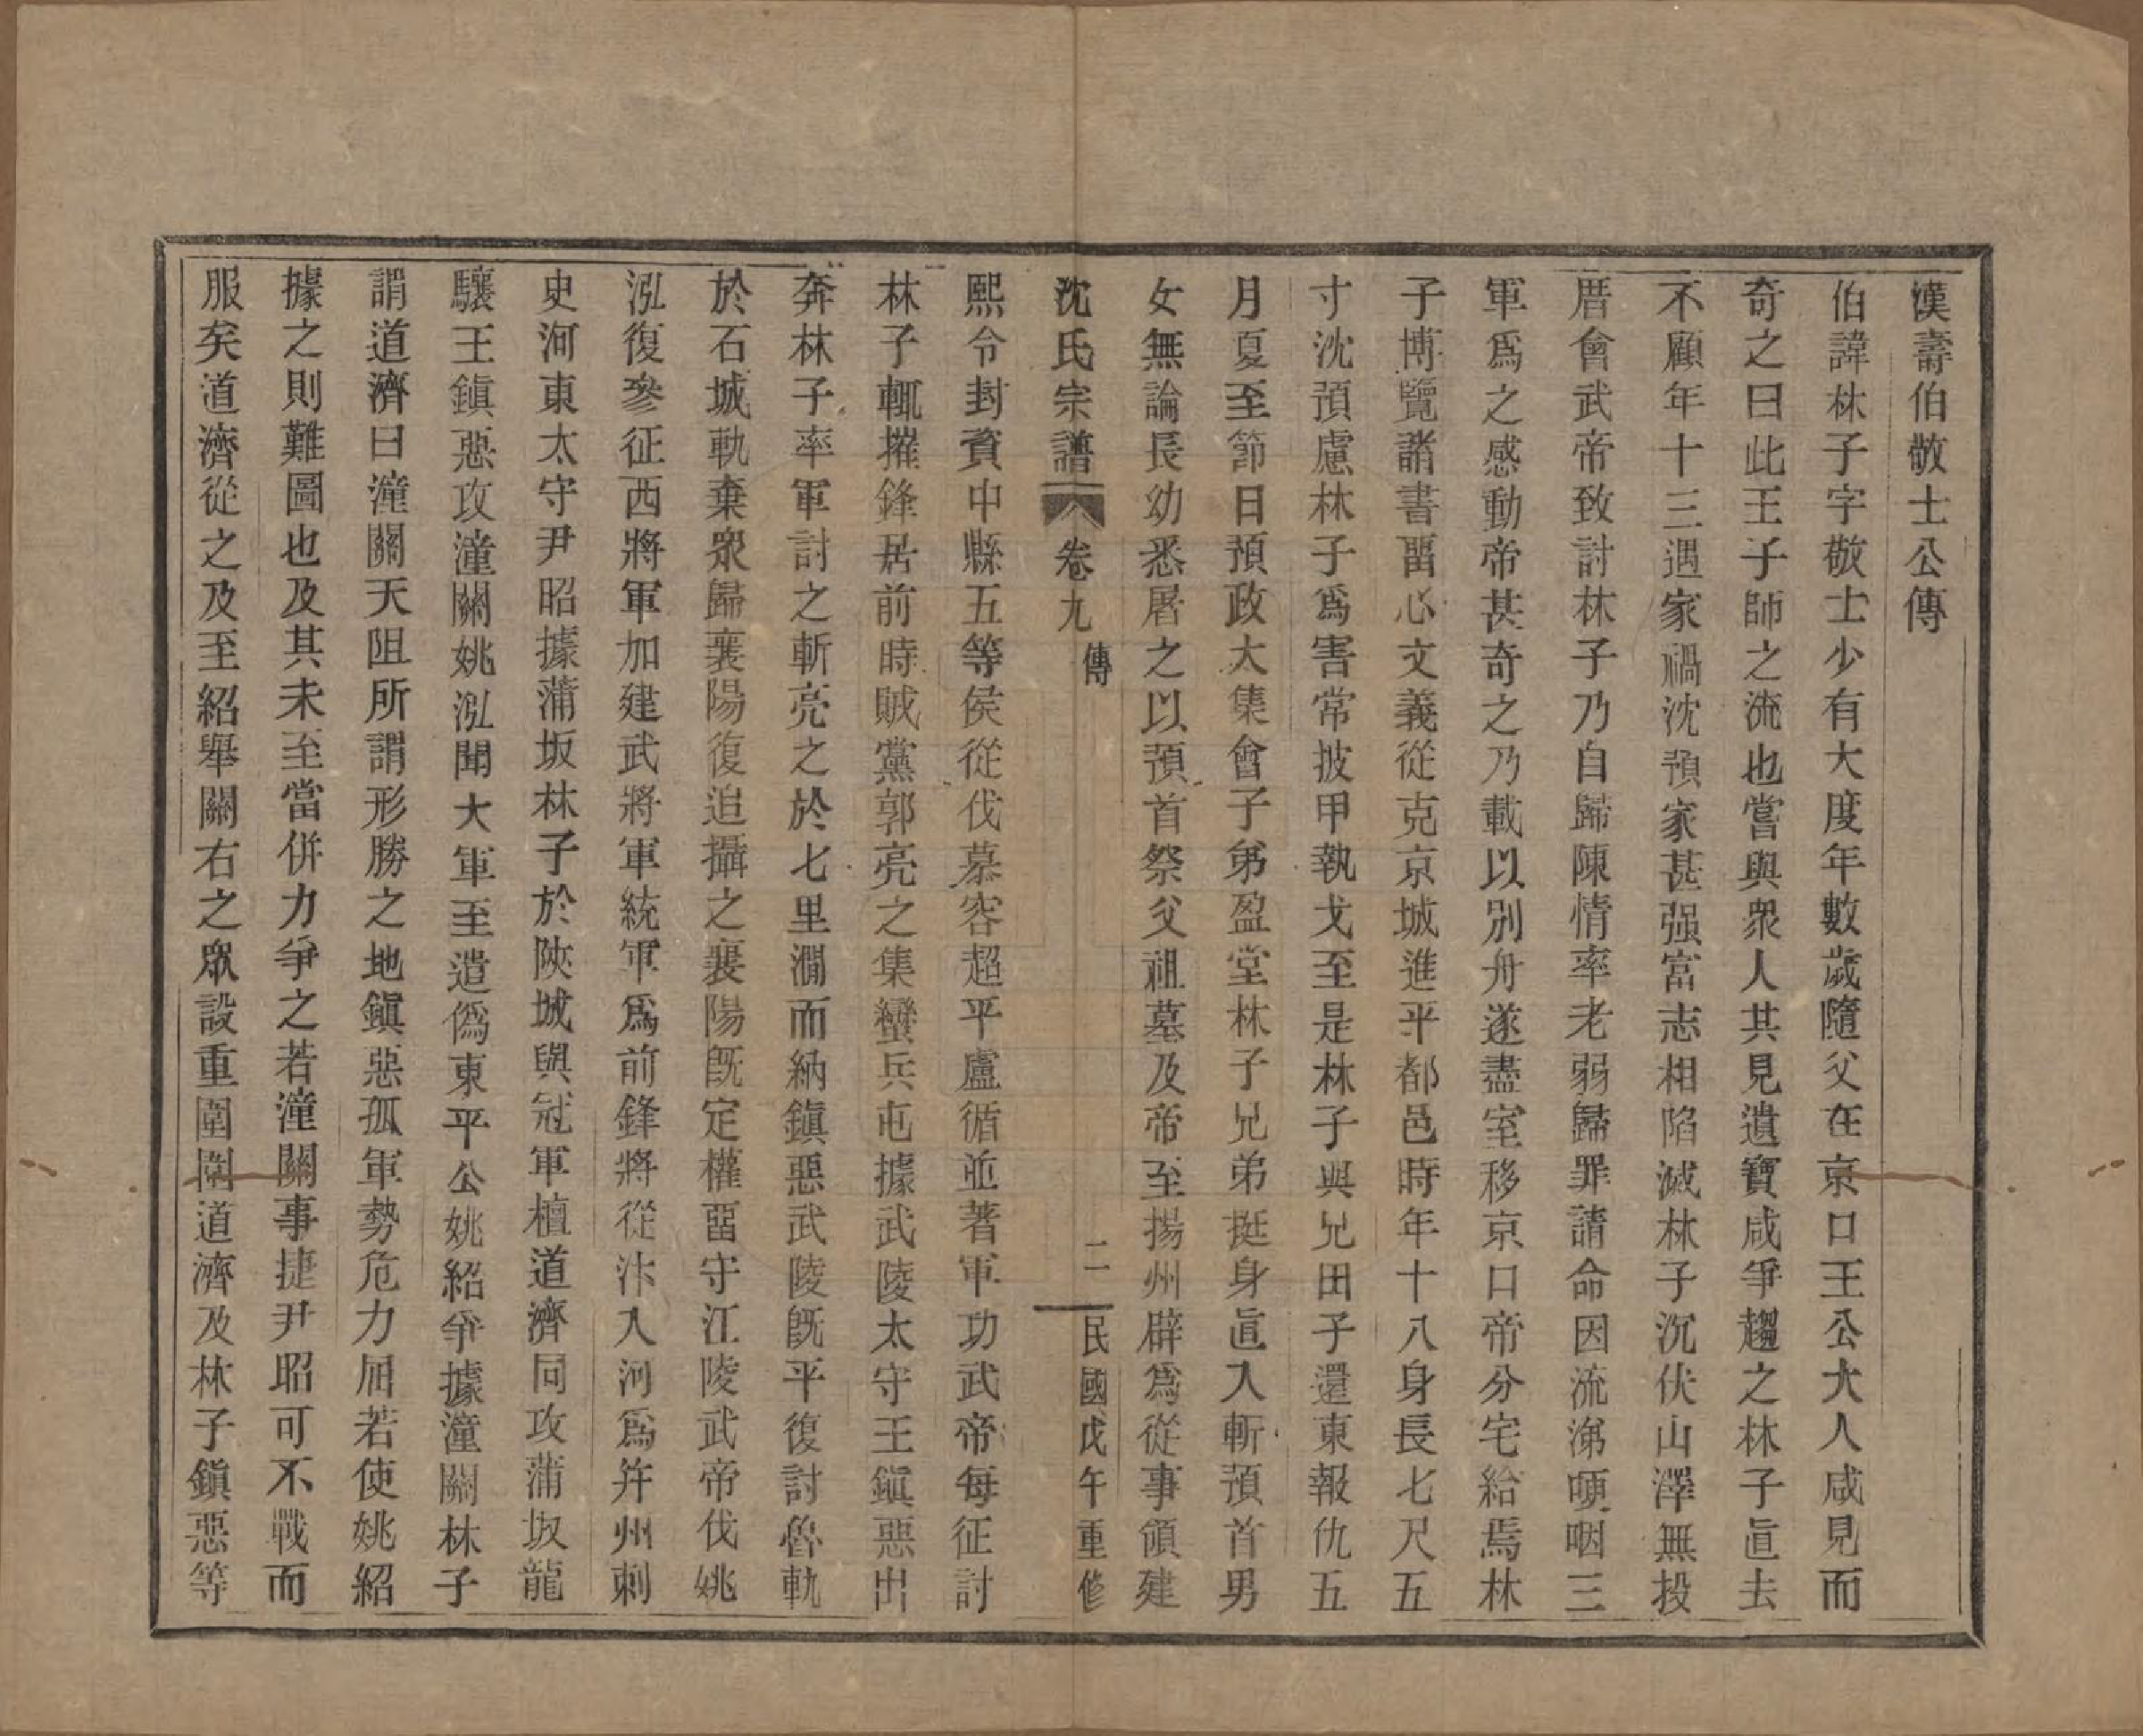 漢壽伯敬士公傳
伯諱林子字敬士少有大度年數歲隨父在京口王公大人咸見而
奇之曰此王子師之流也嘗與衆人共見遺寶咸爭趨之林子眞去
不顧年十三遇家禍沈預家甚强富志相陷滅林子沉伏山澤無投
厝會武帝致討林子乃自歸陳情率老弱歸罪請命因流涕哽咽三
軍爲之感動帝甚奇之乃載以別舟遂盡室移京口帝分宅給焉林
子博覽諸書畱心文義從克京城進平都邑時年十八身長七尺五
寸沈預慮林子爲害常披甲執戈至是林子與兄田子還東報仇五
月夏至節日預政大集會子弟盈堂林子兄弟挺身眞入斬預首男
女無論長幼悉屠之以預首祭父祖墓及帝至揚州辟爲從事領建
沈氏宗譜 卷九 傳 二 民國戊午重修
熙令封資中縣五等侯從伐慕容超平盧循並著軍功武帝每征討
林子輒摧鋒居前時賊黨郭亮之集蠻兵屯據武陵太守王鎭惡出
奔林子率軍討之斬亮之於七里澗而納鎭惡武陵旣平復討魯軌
於石城軌棄衆歸襄陽復追攝之襄陽旣定權畱守江陵武帝伐姚
泓復參征西將軍加建武將軍統軍爲前鋒將從汴入河爲幷州刺
史河東太守尹昭據蒲坂林子於陝城與冠軍檀道濟同攻蒲坂龍
驤王鎭惡攻潼關姚泓聞大軍至遣僞東平公姚紹爭據潼關林子
謂道濟曰潼關天阻所謂形勝之地鎭惡孤軍勢危力屈若使姚紹
據之則難圖也及其未至當併力爭之若潼關事捷尹昭可不戰而
服矣道濟從之及至紹舉關右之眾設重圍圍道濟及林子鎭惡等